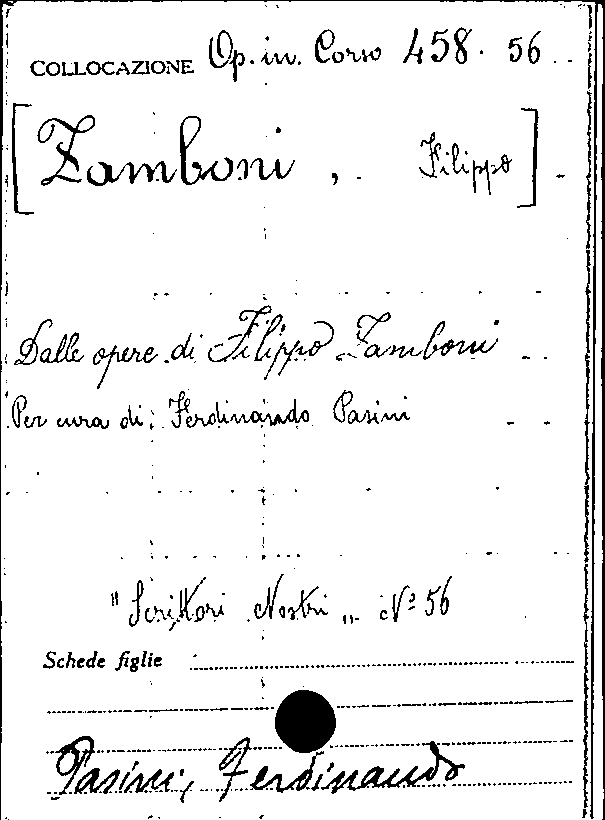 COLLOCAZIONE Op. in. Corso 458. 56
[Zamboni, Filippo]
Dalle opere di Filippo Zamboni
Per cura di: Ferdinando Pasini
"Scrittori Nostri„ Nº 56
Schede figlie
Pasini, Ferdinando